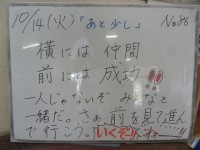 10/14(火)「あと少し」 No.86
横には 仲間
前には 成功!!
一人じゃないぞ みんなと
一緒だ。さぁ 前を見て進ん
で行こう。いくぞ!!